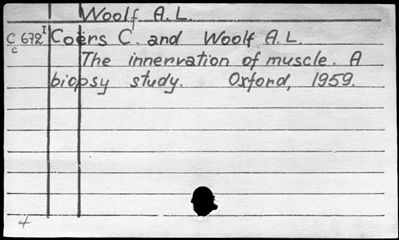 Woolf A.L.
C 672 I Coërs C. and Woolf A.L.
c
The innervation of muscle. A
biopsy study. Oxford, 1959.
4